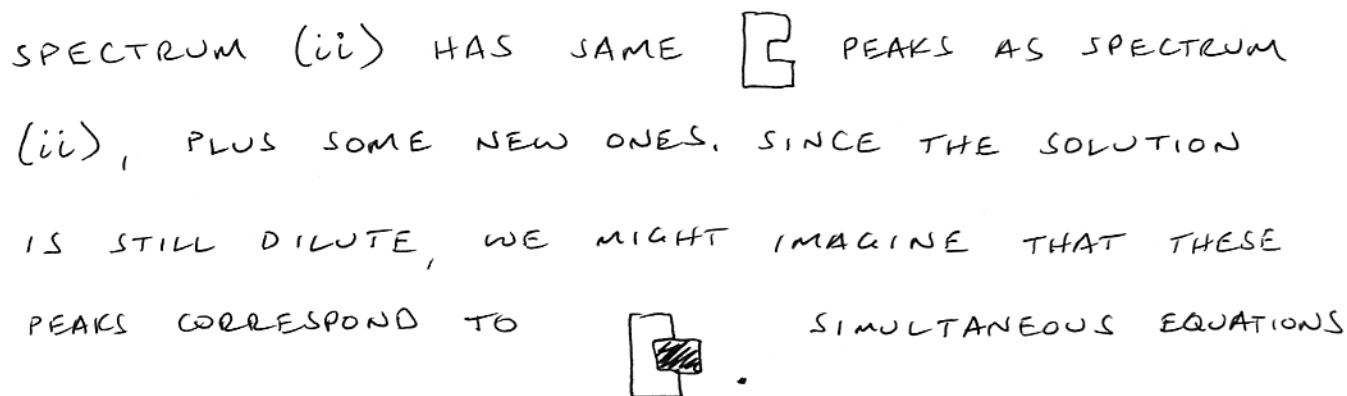 SPECTRUM (ii) HAS SAME PEAKS AS SPECTRUM
(ii), PLUS SOME NEW ONES. SINCE THE SOLUTION
IS STILL DILUTE, WE MIGHT IMAGINE THAT THESE
PEAKS CORRESPOND TO . SIMULTANEOUS EQUATIONS